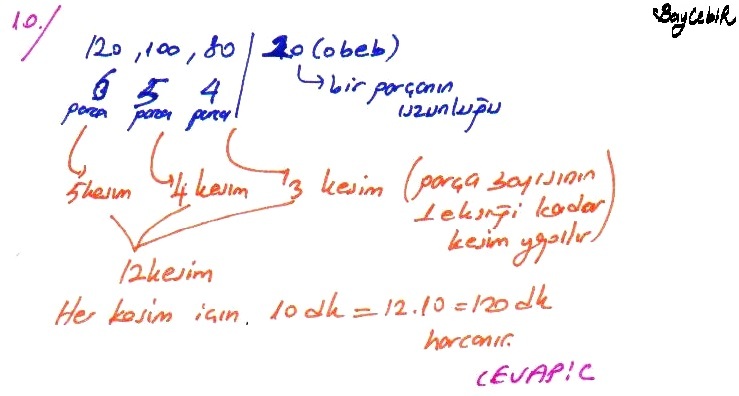 BayCebiR
10./
120, 100, 80 | 20 (obeb)
6 5 4 → bir parçanın
parça parça parça uzunluğu
5 kesim 4 kesim 3 kesim (parça sayısının
1 eksiği kadar
kesim yapılır)
12 kesim
Her kesim için. 10 dk = 12.10 = 120 dk
harcanır.
CEVAP: C